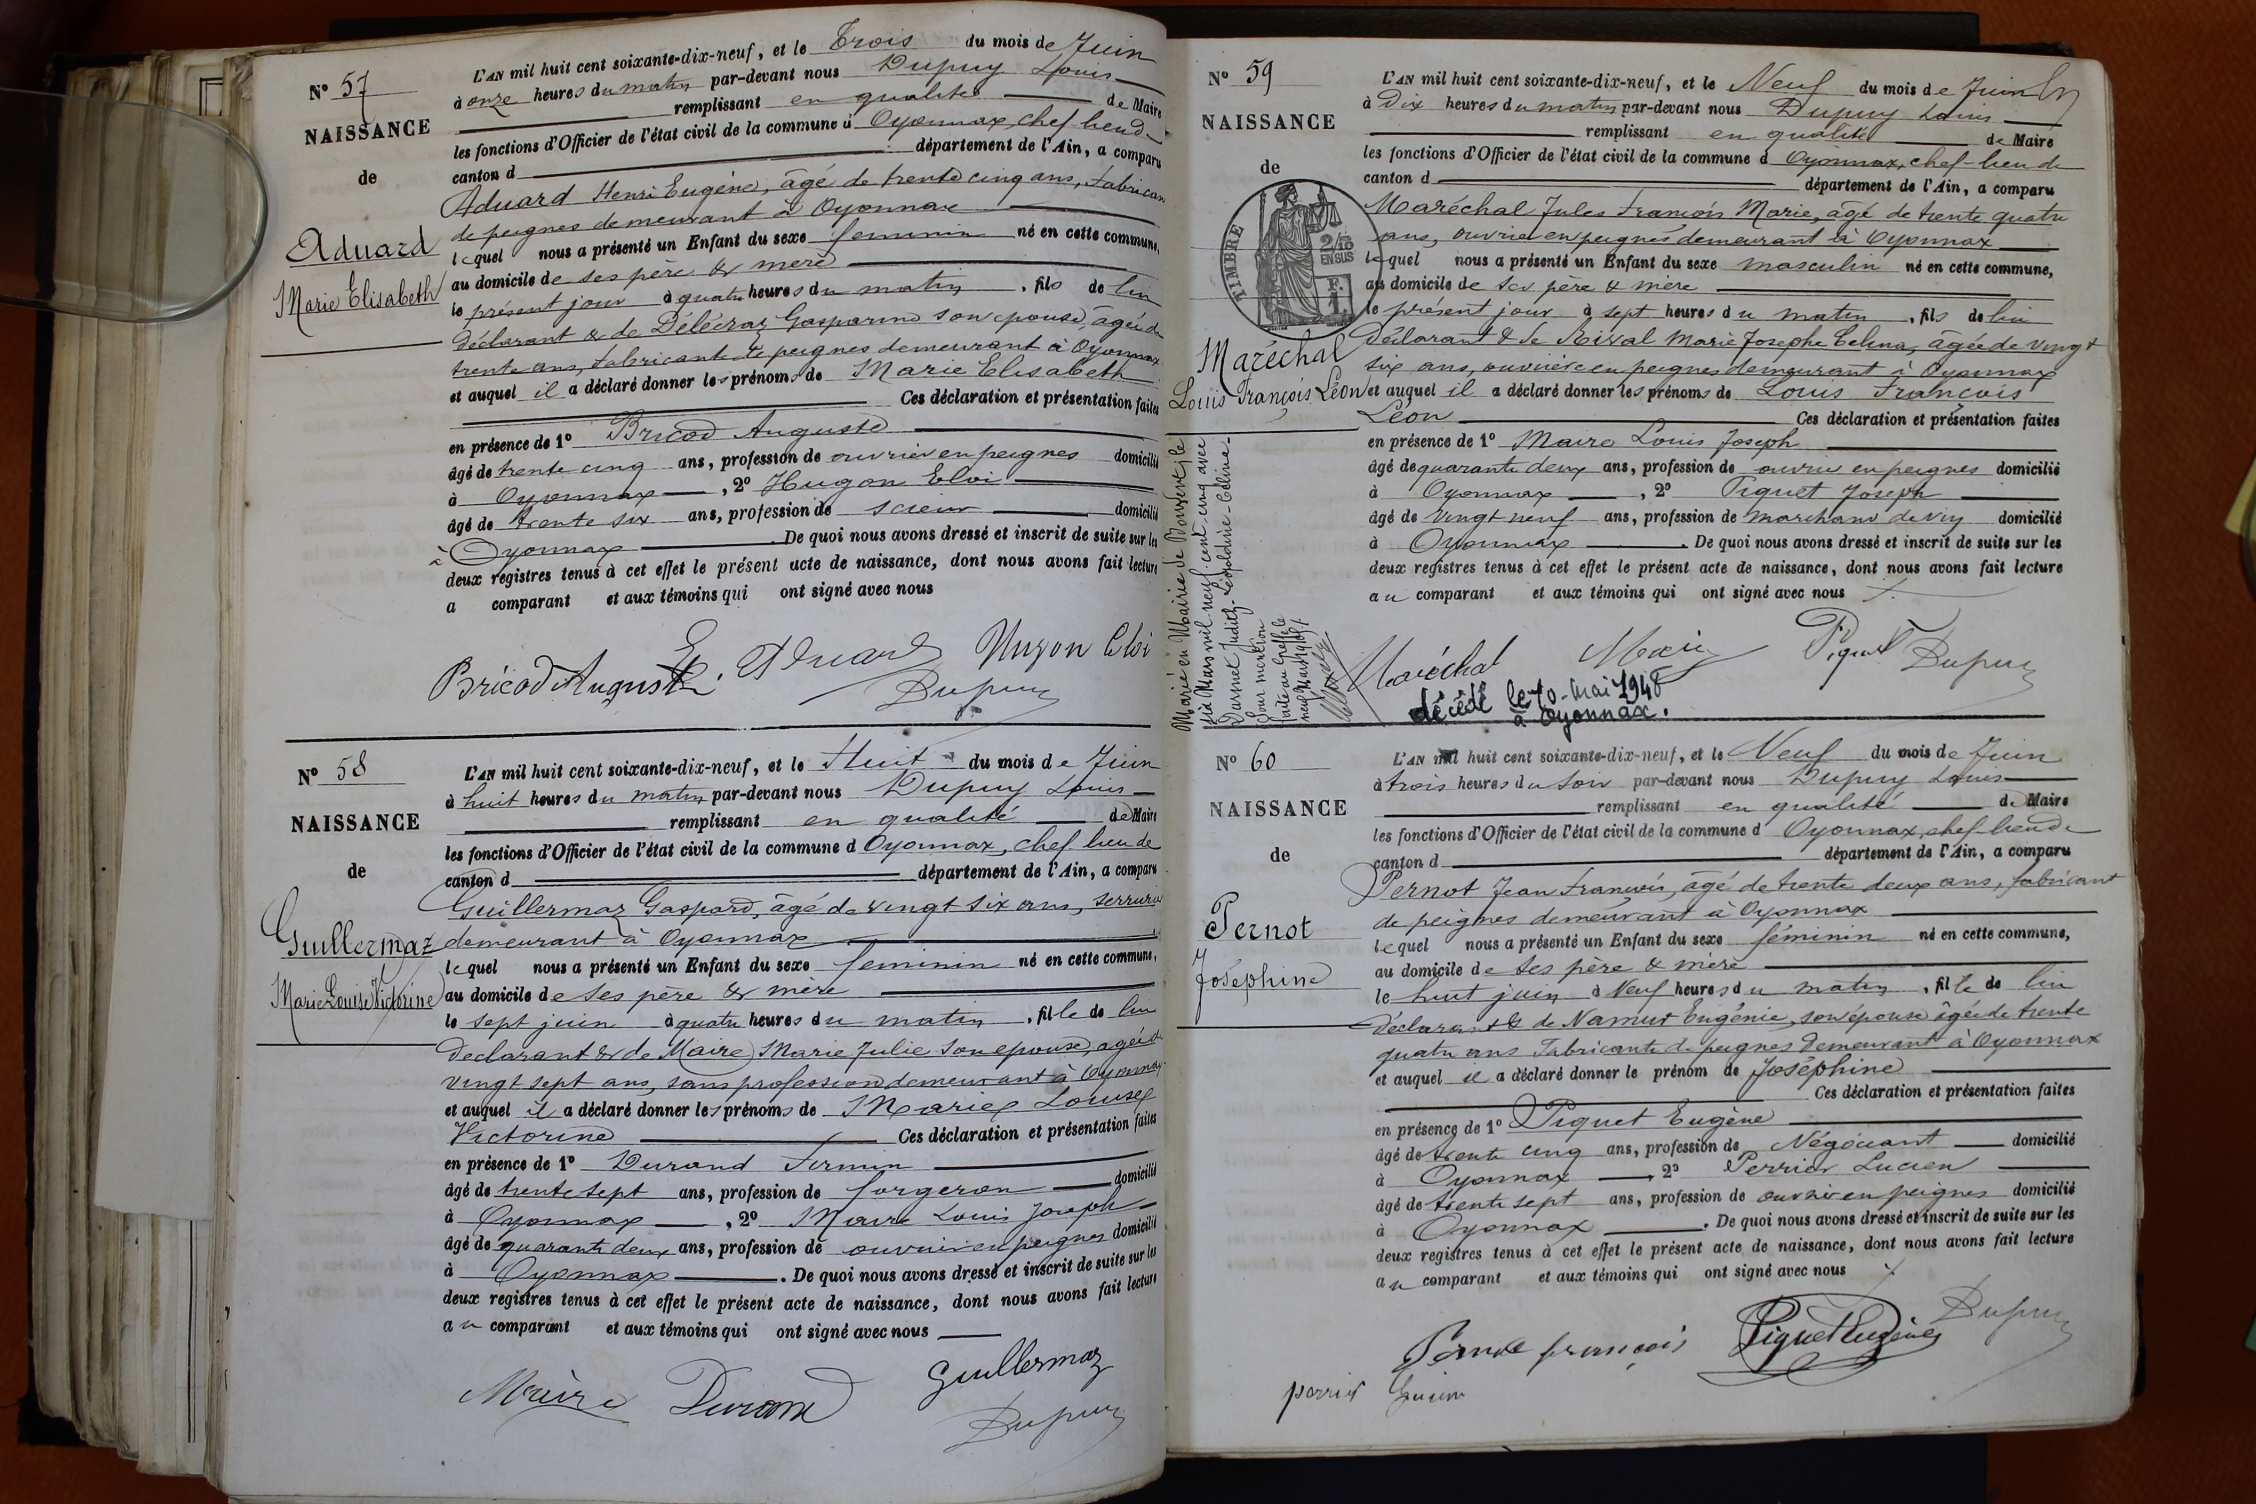 N° 57
NAISSANCE
de
Aduard
Marie Elisabeth
L'AN mil huit cent soixante-dix-neuf, et le Trois du mois de Juin
à onze heures du matin par-devant nous Dupuy Louis
remplissant en qualité de Maire
les fonctions d'Officier de l'état civil de la commune d Oyonnax, chef lieu de
canton d département de l'Ain, a comparu
Aduard Henri Eugène, âgé de trente cinq ans, fabricant
de peignes demeurant à Oyonnax
lequel nous a présenté un Enfant du sexe feminin né en cette commune,
au domicile de ses père & mère
le présent jour à quatre heures du matin, fils de lui
déclarant & de Délécraz Gasparine son épouse, âgée de
trente ans, fabricante de peignes demeurant à Oyonnax
et auquel il a déclaré donner les prénoms de Marie Elisabeth
Ces déclaration et présentation faites
en présence de 1° Bricod Auguste
âgé de trente cinq ans, profession de ouvrier en peignes domicilié
à Oyonnax, 2° Hugon Eloi
âgé de trente six ans, profession de scieur domicilié
à Oyonnax. De quoi nous avons dressé et inscrit de suite sur les
deux registres tenus à cet effet le présent acte de naissance, dont nous avons fait lecture
a comparant et aux témoins qui ont signé avec nous
Bricod Auguste E. Aduard Hugon Eloi
Dupuy
N° 58
NAISSANCE
de
Guillermaz
Marie Louise Victorine
L'AN mil huit cent soixante-dix-neuf, et le Huit du mois de Juin
à huit heures du matin par-devant nous Dupuy Louis
remplissant en qualité de Maire
les fonctions d'Officier de l'état civil de la commune d Oyonnax, chef lieu de
canton d département de l'Ain, a comparu
Guillermaz Gaspard, âgé de vingt six ans, serrurier
demeurant à Oyonnax
lequel nous a présenté un Enfant du sexe feminin né en cette commune,
au domicile de ses père & mère
le sept juin à quatre heures du matin, fille de lui
declarant & de Maire Marie Julie son epouse, agée de
vingt sept ans, sans profession demeurant à Oyonnax
et auquel il a déclaré donner les prénoms de Marie Louise
Victorine Ces déclaration et présentation faites
en présence de 1° Durand Firmin
âgé de trente sept ans, profession de forgeron domicilié
à Oyonnax, 2° Maire Louis Joseph
âgé de quarante deux ans, profession de ouvrier en peignes domicilié
à Oyonnax. De quoi nous avons dressé et inscrit de suite sur les
deux registres tenus à cet effet le présent acte de naissance, dont nous avons fait lecture
au comparant et aux témoins qui ont signé avec nous
Maire Durand Guillermaz
Dupuy
N° 59
NAISSANCE
de
TIMBRE
2/10
EN SUS
F.
1
Maréchal
Louis François Léon
L'AN mil huit cent soixante-dix-neuf, et le Neuf du mois de Juin
à Dix heures du matin par-devant nous Dupuy Louis
remplissant en qualité de Maire
les fonctions d'Officier de l'état civil de la commune d Oyonnax, chef-lieu de
canton d département de l'Ain, a comparu
Maréchal Jules François Marie, âgé de trente quatre
ans, ouvrier en peignes demeurant à Oyonnax
lequel nous a présenté un Enfant du sexe masculin né en cette commune,
au domicile de ses père & mère
le présent jour à sept heures du matin, fils de lui
déclarant & de Rival Marie Josephe Celina, âgée de vingt
six ans, ouvrière en peignes demeurant à Oyonnax
et auquel il a déclaré donner les prénoms de Louis François
Léon Ces déclaration et présentation faites
en présence de 1° Maire Louis Joseph
âgé de quarante deux ans, profession de ouvrier en peignes domicilié
à Oyonnax, 2° Piquet Joseph
âgé de vingt neuf ans, profession de marchand de vin domicilié
à Oyonnax. De quoi nous avons dressé et inscrit de suite sur les
deux registres tenus à cet effet le présent acte de naissance, dont nous avons fait lecture
au comparant et aux témoins qui ont signé avec nous
Maréchal Maire Piquet Dupuy
décédé le 10 mai 1948
à Oyonnax.
Marié en Mairie de le
six Mars mil neuf cent cinq avec
Judith-Léopoldine-Célina
Pour mention
faite au Greffe le
neuf Mars 1905
N° 60
NAISSANCE
de
Pernot
Joséphine
L'AN mil huit cent soixante-dix-neuf, et le Neuf du mois de Juin
à trois heures du soir par-devant nous Dupuy Louis
remplissant en qualité de Maire
les fonctions d'Officier de l'état civil de la commune d Oyonnax, chef-lieu de
canton d département de l'Ain, a comparu
Pernot Jean François, âgé de trente deux ans, fabricant
de peignes demeurant à Oyonnax
lequel nous a présenté un Enfant du sexe féminin né en cette commune,
au domicile de ses père & mère
le huit juin à Neuf heures du matin, fille de lui
déclarant & de Namur Eugénie, son épouse âgée de trente
quatre ans fabricante de peignes demeurant à Oyonnax
et auquel il a déclaré donner le prénom de Joséphine
Ces déclaration et présentation faites
en présence de 1° Piquet Eugène
âgé de trente cinq ans, profession de Négociant domicilié
à Oyonnax, 2° Perrier Lucien
âgé de trente sept ans, profession de ouvrier en peignes domicilié
à Oyonnax. De quoi nous avons dressé et inscrit de suite sur les
deux registres tenus à cet effet le présent acte de naissance, dont nous avons fait lecture
au comparant et aux témoins qui ont signé avec nous
Pernot françois Piquet Eugène Dupuy
perrier Lucien